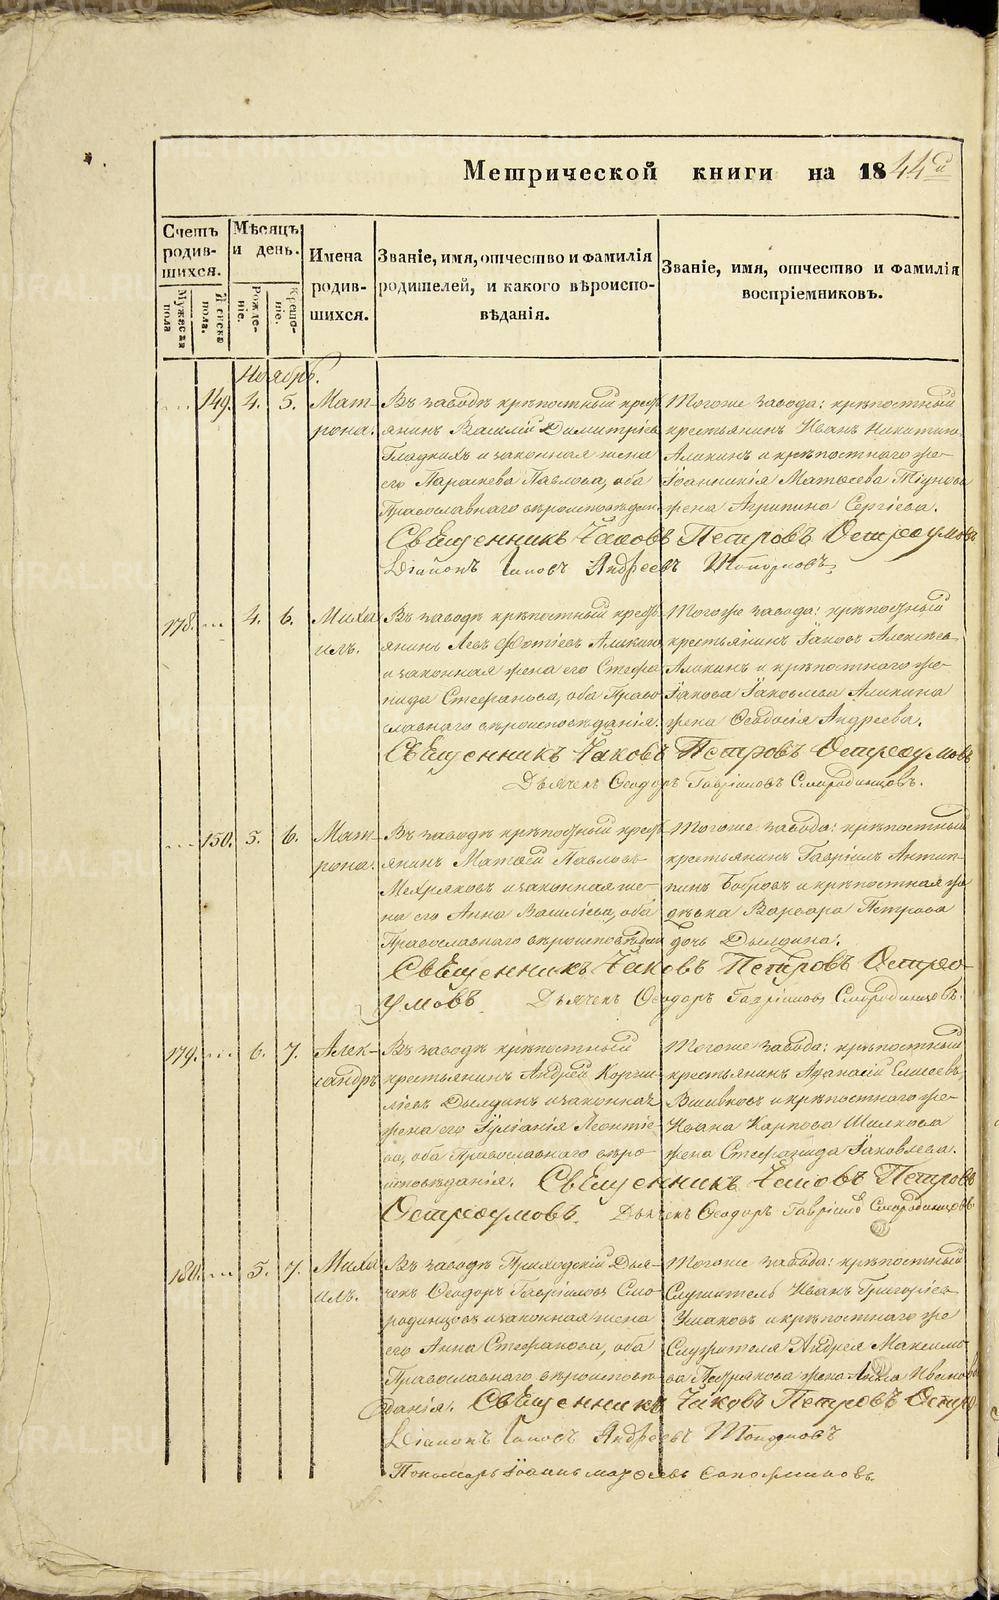 Метрической книги на 1844й
Счетъ родив-шихся.
Мужеска пола
Женска пола.
Мѣсяцъ и день.
Рожде-ніе.
Креще-ніе.
Имена родив-шихся.
Званіе, имя, отчество и фамилія родителей, и какого вѣроиспо-вѣданія.
Званіе, имя, отчество и фамилія воспріемниковъ.
Ноябрь.
149. 4. 5. Мат-
рона.
Въ заводѣ крѣпостный крест
янинъ Василій Димитріевъ
Гладкихъ и законная жена
его Параскева Павлова, оба
Православнаго вѣроисповѣдан.
Тогоже завода: крѣпостный
крестьянинъ Иванъ Никитинъ
Аликинъ и крѣпостнаго же
Іоанникія Матѳеева Тіунова
жена Агрипина Сергіева.
Священникъ Іаковъ Петровъ Остроумовъ
Діаконъ Іаковъ Андреевъ Топорковъ
178. 4. 6. Миха
илъ.
Въ заводѣ крѣпостный крестъ
янинъ Левъ Фотіевъ Аликинъ
и законная жена его Стефа
нида Стефанова, оба Право
славнаго вѣроисповѣданія.
Тогоже завода: крѣпостный
крестьянинъ Іаковъ Алексѣевъ
Аликинъ и крѣпостнаго же
Іакова Іаковлева Аликина
жена Ѳеодосія Андреева.
Священникъ Іаковъ Петровъ Остроумовъ
Дьячекъ Ѳеодоръ Гавріиловъ Смородинцовъ.
150. 5. 6. Мат-
рона.
Въ заводѣ крѣпостный крест
янинъ Матѳей Павловъ
Мехряковъ и законная же-
на его Анна Василіева, оба
Православнаго вѣроисповѣдан
Тогоже завода: крѣпостный
крестьянинъ Гавріилъ Антип-
пинъ Бобровъ и крѣпостная же
дѣвка Варвара Петрова
дочь Дылдина.
Священникъ Іаковъ Петровъ Остро-
умовъ. Дьячекъ Ѳеодоръ Гавріиловъ Смородинцовъ.
179. 6. 7. Алек-
сандръ
Въ заводѣ крѣпостный
крестьянинъ Андрей Корни-
ліевъ Дылдинъ и законная
жена его Іуліанія Леонтіе-
ва, оба Православнаго вѣро-
исповѣданія.
Тогоже завода: крѣпостный
крестьянинъ Аѳанасій Елисеевъ
Вшивковъ и крѣпостнаго же
Ивана Карпова Шилкова
жена Стефанида Іаковлева.
Священникъ Іаковъ Петровъ
Остроумовъ. Дьячекъ Ѳеодоръ Гавріиловъ Смородинцовъ
180. 5. 7. Миха
илъ.
Въ заводѣ Приходскій Дья-
чекъ Ѳеодоръ Гавріиловъ Смо
родинцовъ и законная жена
его Анна Стефанова, оба
Православнаго вѣроисповѣ-
данія.
Тогоже завода: крѣпостный
Служитель Иванъ Григоріевъ
Ушаковъ и крѣпостнаго же
Служителя Андрея Максимо-
ва жена Анна Иванова
Священникъ Іаковъ Петровъ Остро
Діаконъ Іаковъ Андреевъ Топорковъ
Пономарь Іоаннъ